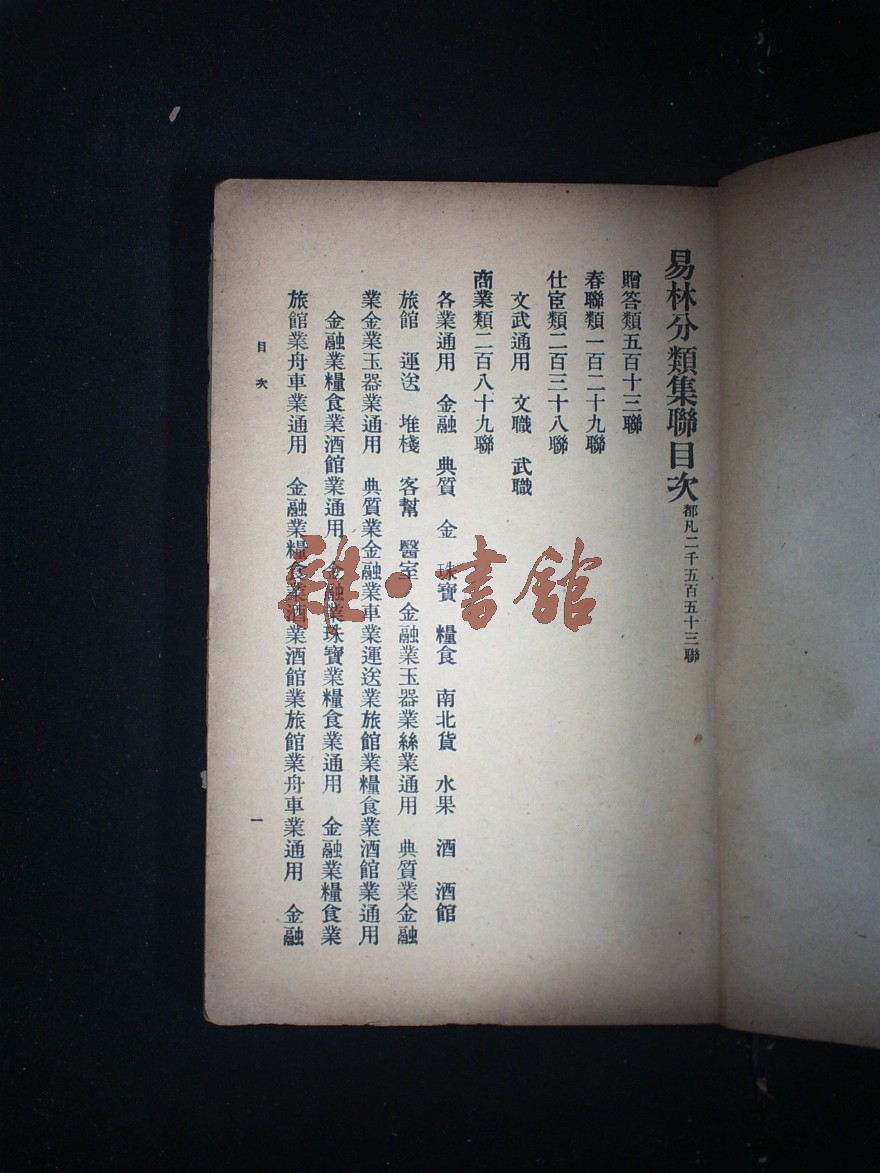 易林分類集聯目次 都凡二千五百五十三聯
贈答類五百十三聯
春聯類一百二十九聯
仕宦類二百三十八聯
文武通用 文職 武職
商業類二百八十九聯
各業通用 金融 典質 金 珠寶 糧食 南北貨 水果 酒 酒館
旅館 運送 堆棧 客幫 醫室 金融業玉器業絲業通用 典質業金融
業金業玉器業通用 典質業金融業車業運送業旅館業糧食業酒館業通用
金融業糧食業酒館業通用 金融業珠寶業糧食業通用 金融業糧食業
旅館業舟車業通用 金融業糧食業酒業酒館業旅館業舟車業通用 金融
目次 一
雜·書館